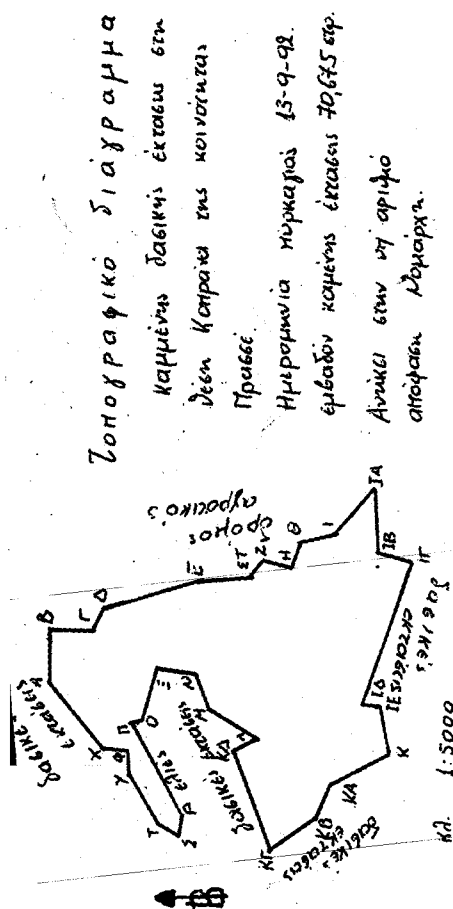 Τοπογραφικό διάγραμμα
καμμένης δασικής έκτασης στη
θέση Κοπράνα της κοινότητας
Πρασσέ
Ημερομηνία πυρκαγιάς 13-9-92.
εμβαδόν καμένης έκτασης 70,675 στρ.
Ανήκει στην υπ' αριθμό
απόφαση Νομάρχη.
δασικές
εκτάσεις
Β
Γ
Δ
Ε
ΣΤ
Ζ
Η
Θ
Ι
ΙΑ
ΙΒ
ΙΓ
ΙΔ
ΙΕ
Κ
ΚΑ
ΚΒ
ΚΓ
ΚΔ
Λ
Μ
Ν
Ξ
Ο
Π
Ρ
Σ
Τ
Υ
Φ
Χ
αγροτικός
δρόμος
ελιές
δασικές εκτάσεις
δασικές
εκτάσεις
δασικές
εκτάσεις
Β
Κλ. 1:5000